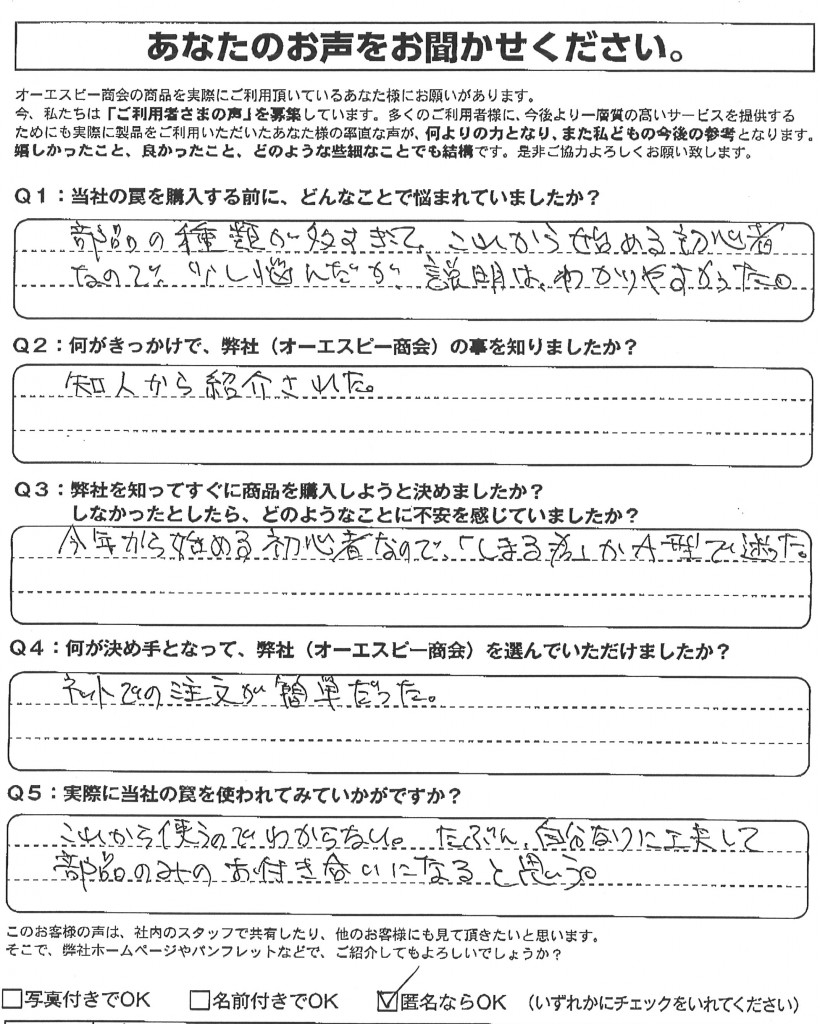 あなたのお声をお聞かせください。
オーエスピー商会の商品を実際にご利用頂いているあなた様にお願いがあります。
今、私たちは「ご利用者さまの声」を募集しています。多くのご利用者様に、今後より一層質の高いサービスを提供する
ためにも実際に製品をご利用いただいたあなた様の率直な声が、何よりの力となり、また私どもの今後の参考となります。
嬉しかったこと、良かったこと、どのような些細なことでも結構です。是非ご協力よろしくお願い致します。
Q1：当社の罠を購入する前に、どんなことで悩まれていましたか？
部品の種類が多すぎて、これから始める初心者
なので、少し悩んだが、説明は、わかりやすかった。
Q2：何がきっかけで、弊社（オーエスピー商会）の事を知りましたか？
知人から紹介された。
Q3：弊社を知ってすぐに商品を購入しようと決めましたか？
しなかったとしたら、どのようなことに不安を感じていましたか？
今年から始める初心者なので、「しまる君」かA型で迷った。
Q4：何が決め手となって、弊社（オーエスピー商会）を選んでいただけましたか？
ネットでの注文が簡単だった。
Q5：実際に当社の罠を使われてみていかがですか？
これから使うのでわからない。たぶん、自分なりに工夫して
部品のみのお付き合いになると思う。
このお客様の声は、社内のスタッフで共有したり、他のお客様にも見て頂きたいと思います。
そこで、弊社ホームページやパンフレットなどで、ご紹介してもよろしいでしょうか？
□写真付きでOK □名前付きでOK ☑匿名ならOK （いずれかにチェックをいれてください）